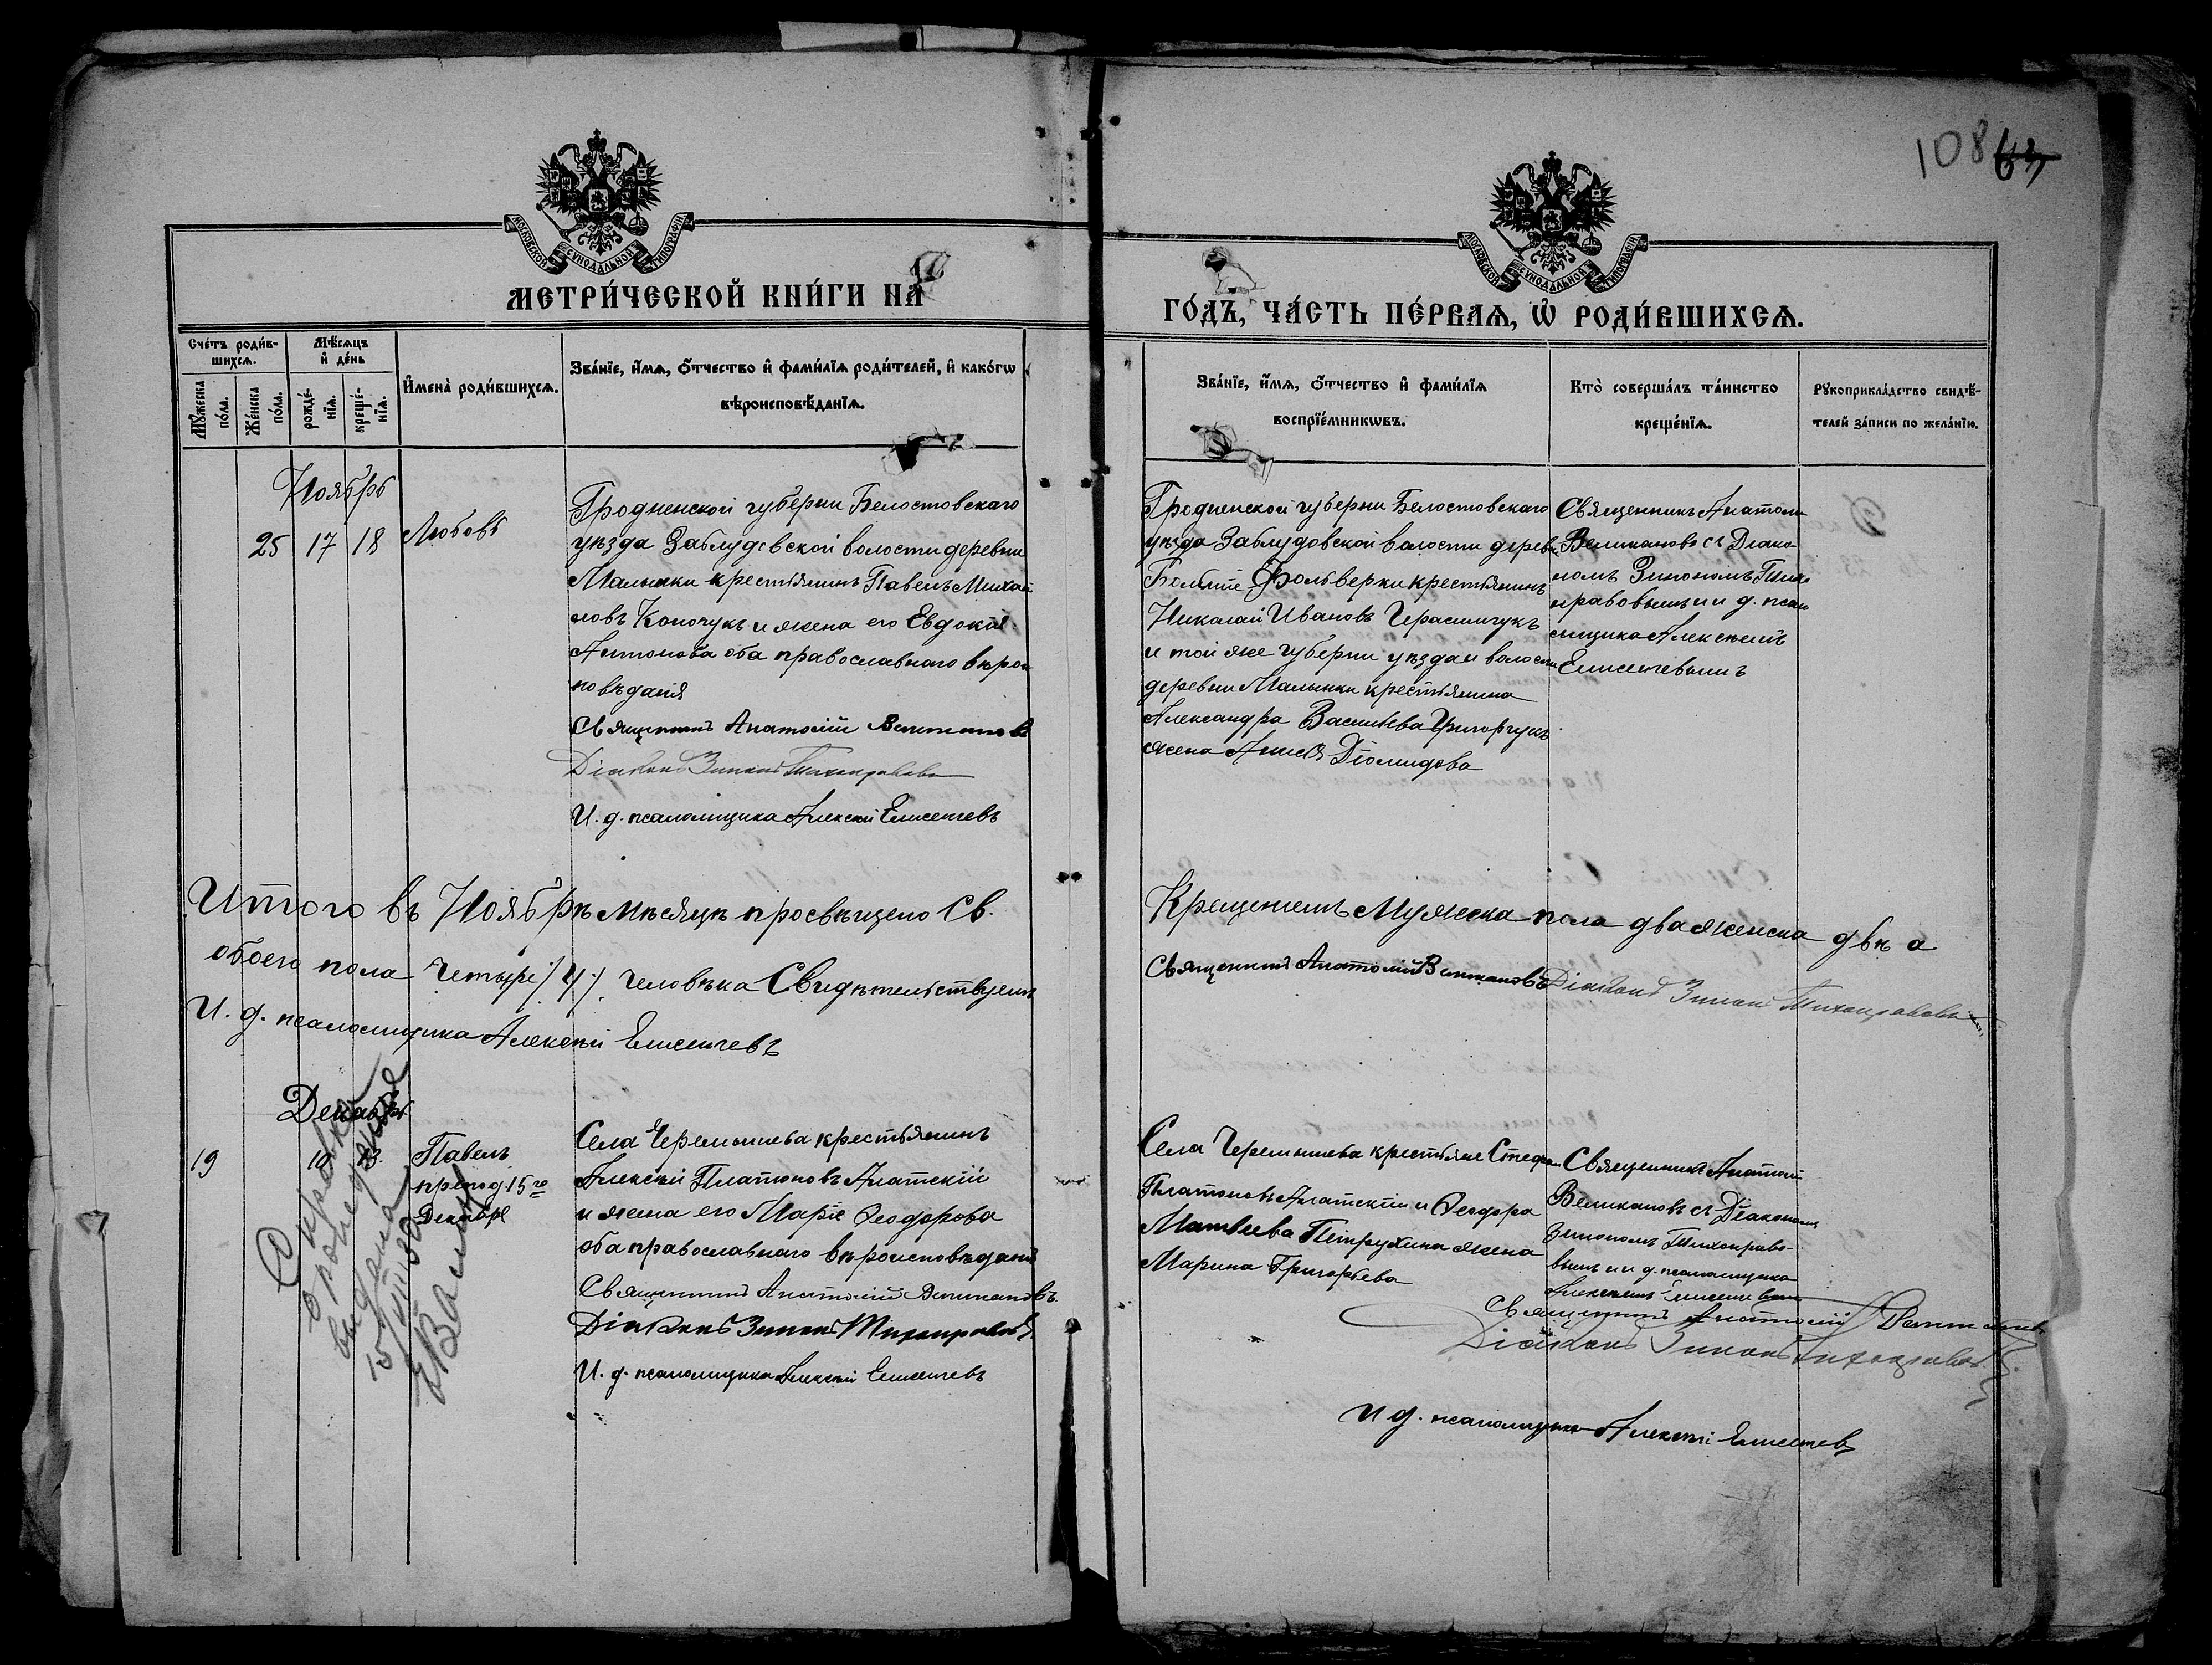 108 63
МОСКОВСКОЙ СѴНОДАЛЬНОЙ ТИПОГРАФІИ
МОСКОВСКОЙ СѴНОДАЛЬНОЙ ТИПОГРАФІИ
МЕТРИ́ЧЕСКОЙ КНИ́ГИ НА
ГО́ДЪ, ЧА́СТЬ ПЕ́РВАѦ, Ѡ РОДИ́ВШИХСѦ.
Сче́тъ роди́в-
шихсѧ.
Мѣ́сѧцъ
и де́нь
Мꙋ́жеска
по́ла.
Же́нска
по́ла.
рожде́-
нїѧ.
креще́-
нїѧ.
И҆мена̀ роди́вшихсѧ.
Зва́нїе, и҆́мѧ, ѻ҆́тчество и҆ фами́лїѧ роди́телей, и҆ како́гѡ
вѣроисповѣ́данїѧ.
Зва́нїе, и҆́мѧ, ѻ҆́тчество и҆ фами́лїѧ
воспрїе́мникѡвъ.
Кто̀ соверша́лъ та́инство
креще́нїѧ.
Рꙋкоприкла́дство свидѣ́-
телей за́писи по жела́нїю.
Ноябрь
25 17 18 Любовь
Гродненской губерни Белостовскаго
уѣзда Заблудовской волости деревни
Малынки крестьянинъ Павелъ Михай
ловъ Коночукъ и жена его Евдокія
Антонова оба православнаго вѣрои
повѣданія
Священникъ Анатолій Великановъ
Діаконъ Зинонъ Тихонравовъ
И. д. псаломщика Алексѣй Елисеичевъ
Гродненской губерни Белостовскаго
уѣзда Заблудовской волости деревн
Большіе Фольверки крестьянинъ
Николай Ивановъ Герасимчукъ
и той же губерни уѣзда и волости
деревни Малынки крестьянина
Александра Васильева Григорчукъ
жена Анисія Діомидова
Священникъ Анатолій
Великановъ съ Діако-
номъ Зинономъ Тихо
нравовымъ и и д. псал
омщика Алексѣемъ
Елисеичевымъ
Итого въ Ноябрѣ мѣсяцѣ просвѣщено Св.
Крещеніемъ Мужеска пола два женска двѣ а
обоего пола четыре /4/ человѣка Свидѣтельствуемъ
Священникъ Анатолій Великановъ Діаконъ Зинонъ Тихонравовъ
И. д. псаломщика Алексѣй Елисеичевъ
Декабрь
19 10 13. Павелъ
препод. 15го
Декабря
Справка
о рожде
выдана
15/III
Села Черемышева крестьянинъ
Алексѣй Платоновъ Алатскій
и жена его Марія Ѳеодорова
оба православнаго вѣроисповѣданія
Священникъ Анатолій Великановъ.
Діаконъ Зинонъ Тихонравовъ
И. д. псаломщика Алексѣй Елисеичевъ
Села Черемышева крестьяне Стефанъ
Платоновъ Алатскій и Ѳеодора
Матвеева Петрухина жена
Марина Григорьева
Священникъ Анатолій
Великановъ съ Діакономъ
Зинономъ Тихонраво-
вымъ и и д. псаломщика
Алексѣемъ Елисеичевымъ
Священникъ Анатолій Великановъ
Діаконъ Зинонъ Тихонравовъ
И д. псаломщика Алексѣй Елисеичевъ